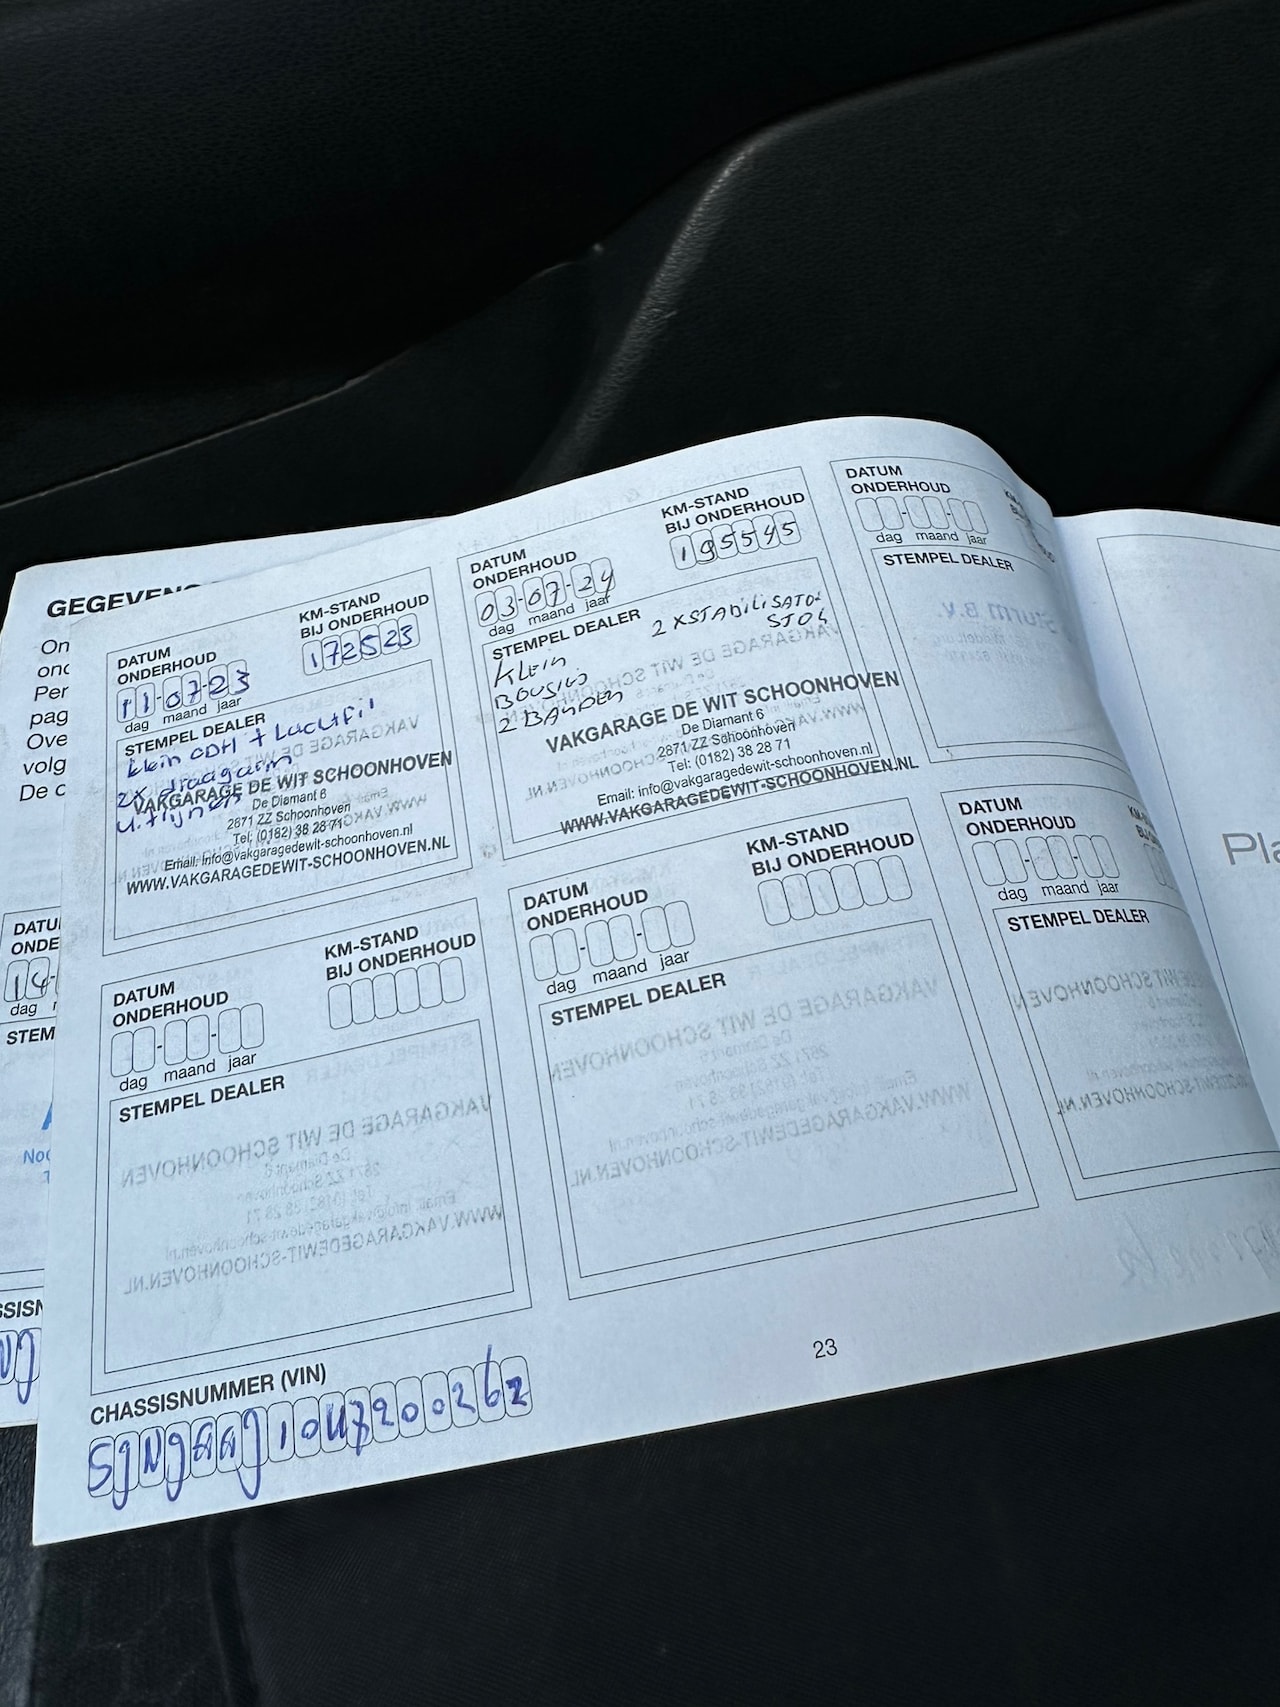 GEGEVENS
On
ond
Per
pag
Ove
volg
De c
DATUM
ONDERHOUD
KM-STAND
BIJ ONDERHOUD
11-07-23
172523
dag maand jaar
STEMPEL DEALER
klein ODH + Luchtfil
2x draagarm
uitlijnen
VAKGARAGE DE WIT SCHOONHOVEN
De Diamant 6
2871 ZZ Schoonhoven
Tel: (0182) 38 28 71
Email: info@vakgaragedewit-schoonhoven.nl
WWW.VAKGARAGEDEWIT-SCHOONHOVEN.NL
DATUM
ONDERHOUD
KM-STAND
BIJ ONDERHOUD
03-07-24
195545
dag maand jaar
STEMPEL DEALER
2 X STABILISATOR
KLEIN
BOUGIES
2 BANDEN
VAKGARAGE DE WIT SCHOONHOVEN
De Diamant 6
2871 ZZ Schoonhoven
Tel: (0182) 38 28 71
Email: info@vakgaragedewit-schoonhoven.nl
WWW.VAKGARAGEDEWIT-SCHOONHOVEN.NL
DATUM
ONDERHOUD
dag maand jaar
STEMPEL DEALER
Pla
DATU
ONDE
14-
dag
STEM
Noo
DATUM
ONDERHOUD
KM-STAND
BIJ ONDERHOUD
dag maand jaar
STEMPEL DEALER
DATUM
ONDERHOUD
KM-STAND
BIJ ONDERHOUD
dag maand jaar
STEMPEL DEALER
DATUM
ONDERHOUD
dag maand jaar
STEMPEL DEALER
CHASSISNUMMER (VIN)
SJNJAAJ10U7200262
23